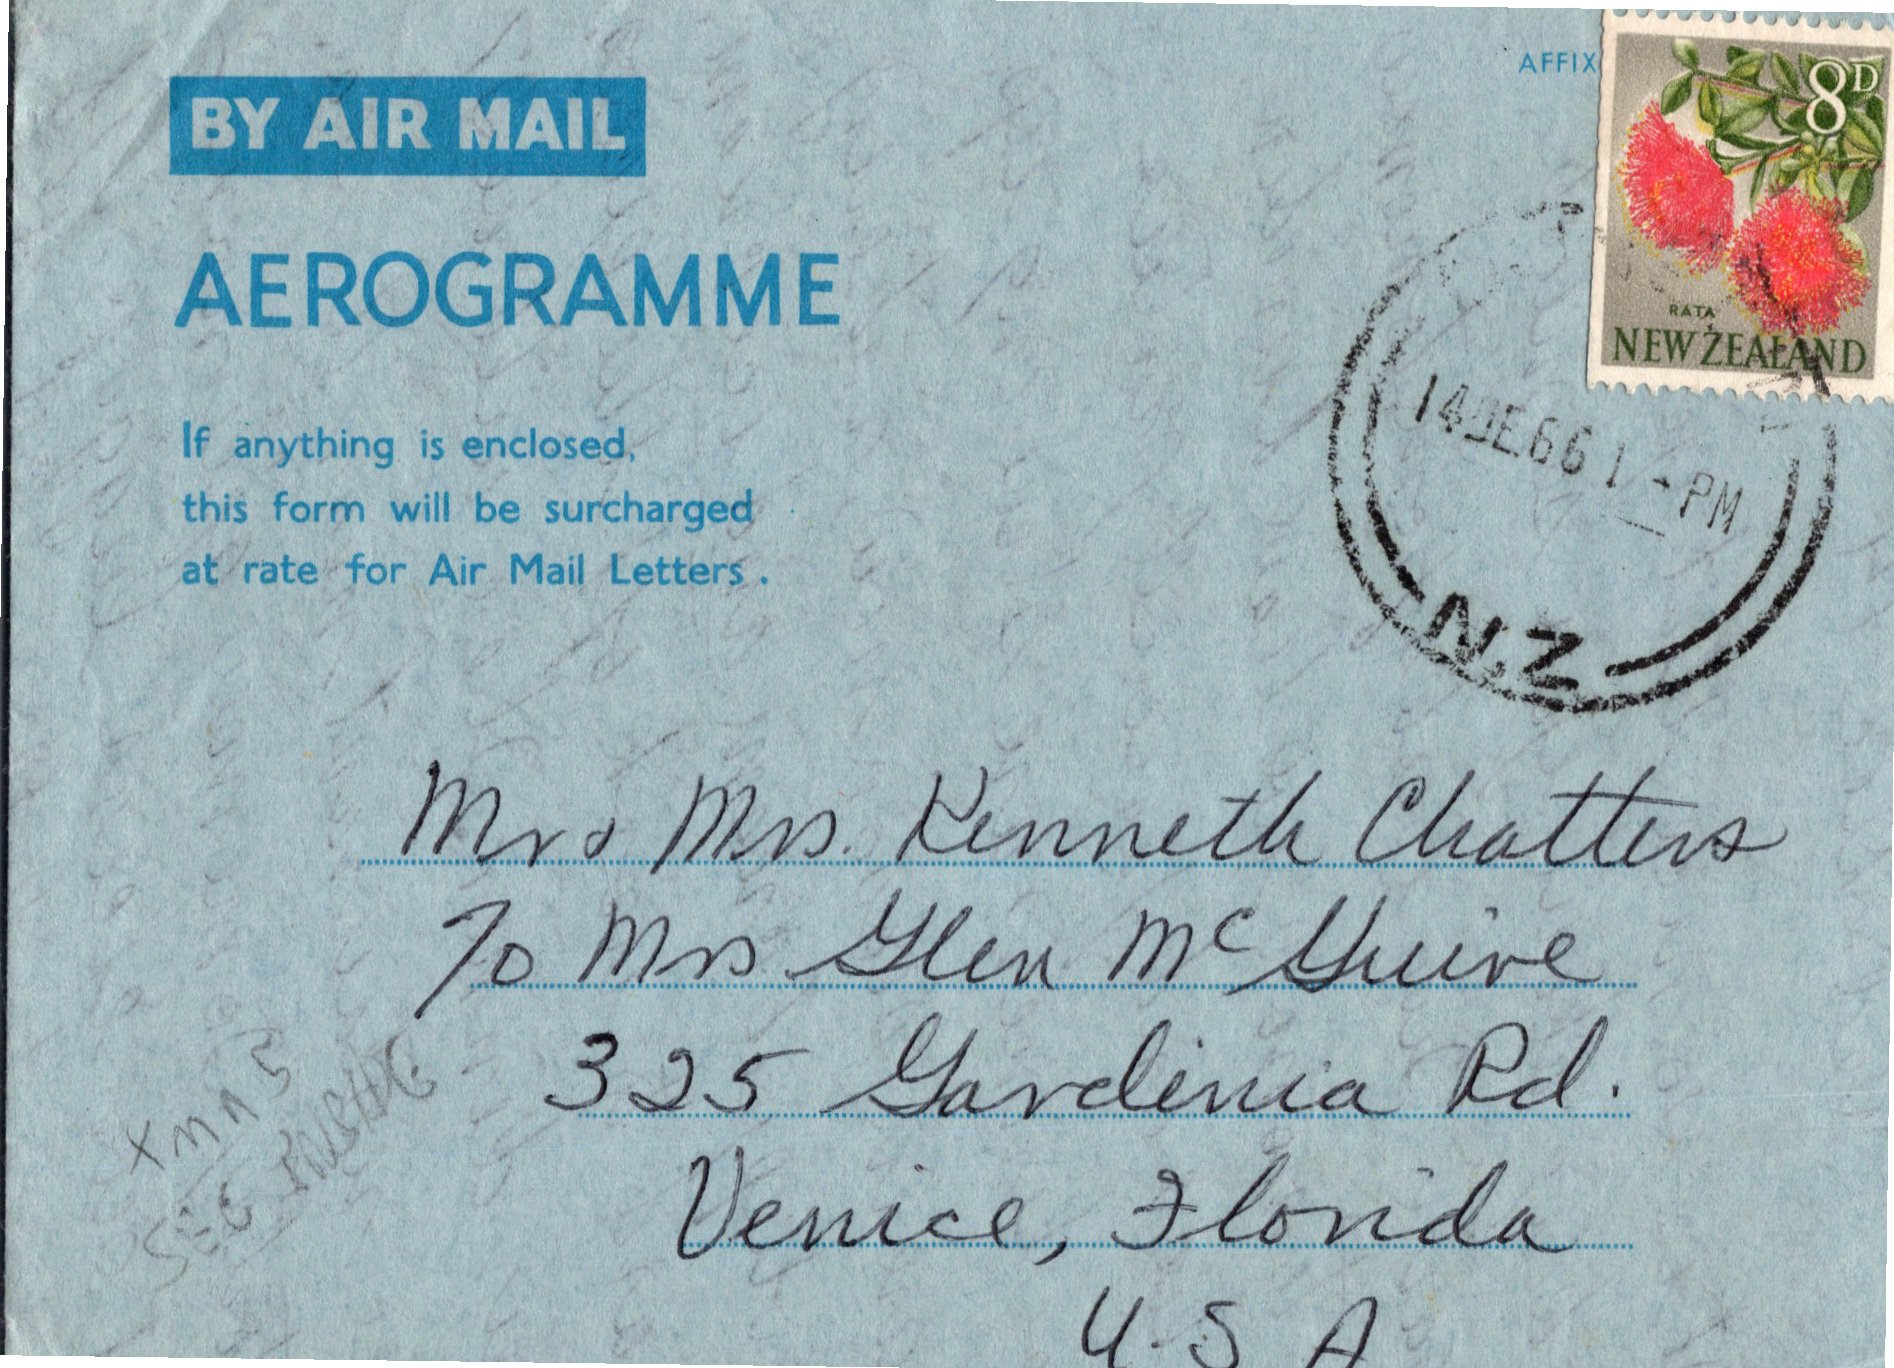 BY AIR MAIL
AFFIX
8D
AEROGRAMME
RATA
NEW ZEALAND
If anything is enclosed,
this form will be surcharged
at rate for Air Mail Letters.
14 DE. 66 1 - PM
N.Z
Mr & Mrs. Kenneth Chatters
To Mrs Glen McGuire
325 Gardinia Rd.
Venice, Florida
U.S A
XMAS